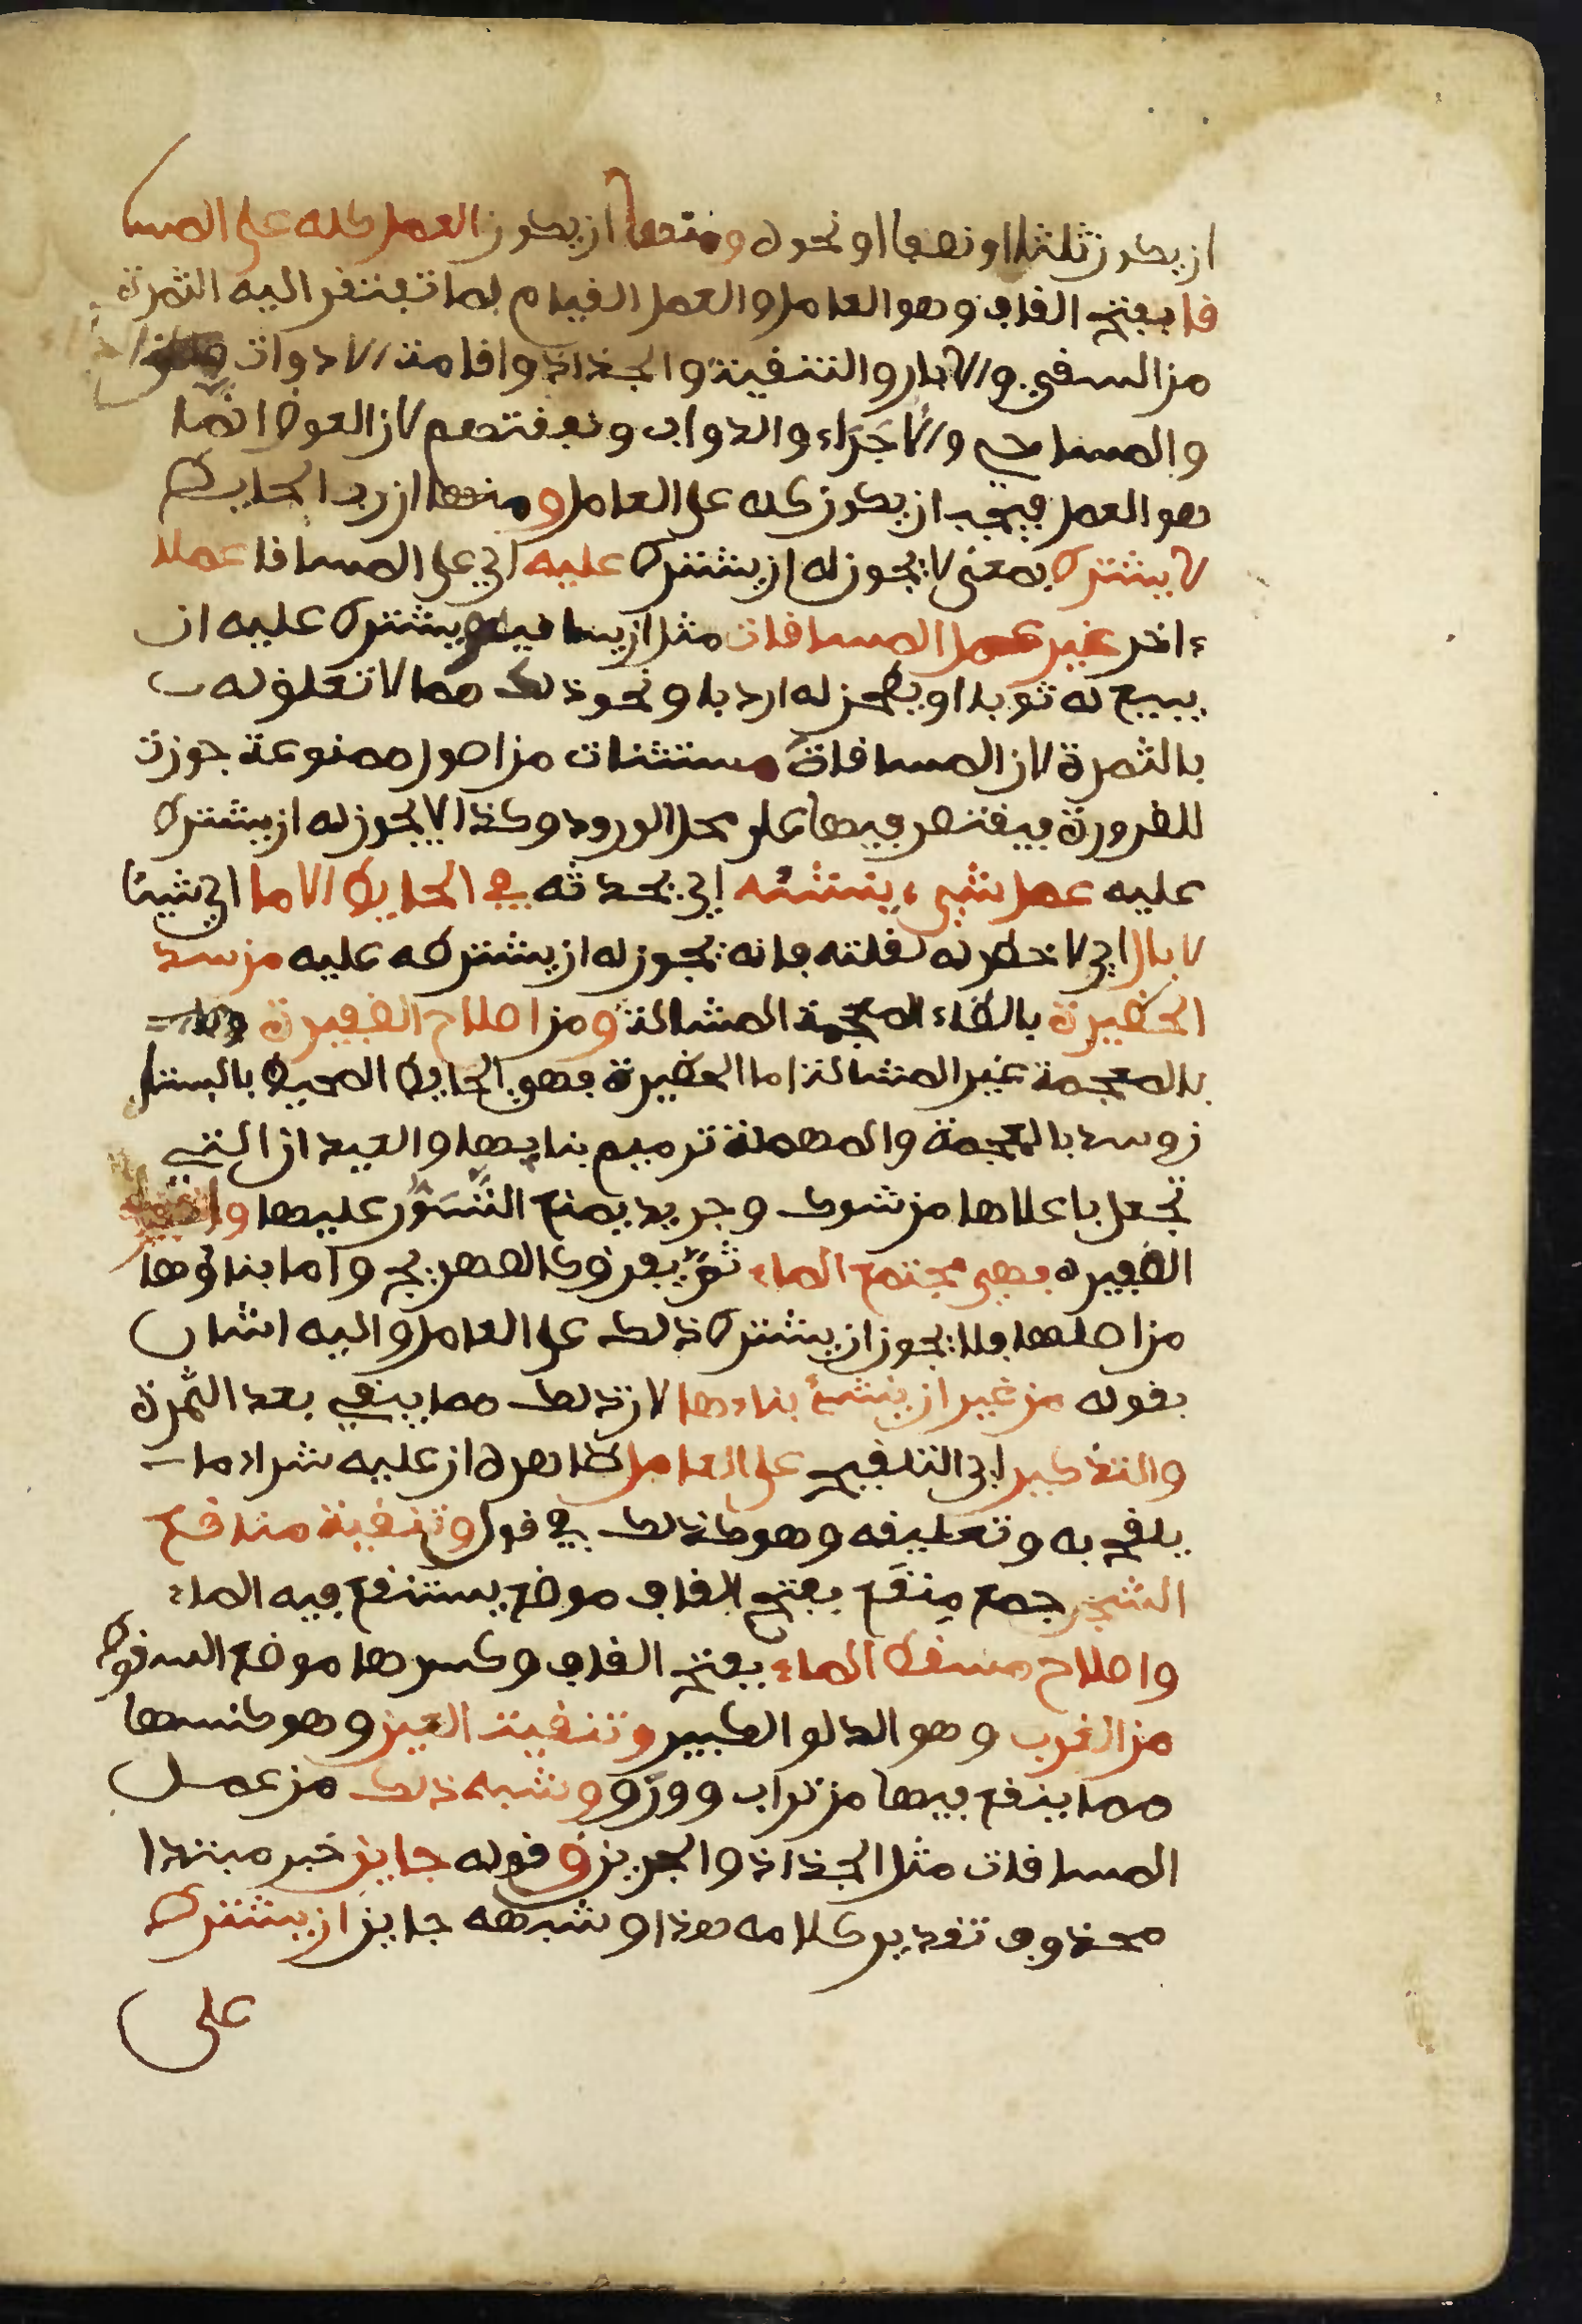 ان يكون ثلثا او نصفا او نحوه ومنها ان يكون العمل كله على المسا
قا بفتح القاف وهو العامل والعمل القيام بما تفتقر اليه الثمرة
من السقي والابار والتنقية والجذاذ واقامة الادوات
والمساحي والاجَرَاء والدواب ونفقتهم لان العوض انما
هو العمل فيجب ان يكون كله على العامل ومنها ان رب الحايط
لا يشترط بمعنى لا يجوز له ان يشترط عليه اي على المساقا عملا
ءاخر غير عمل المساقات مثل ان يساقيه ويشترط عليه ان
يبيع له ثوبا او يطحن له اردبا ونحو ذلك مما لا تعلق له
بالثمرة لان المساقاة مستثنات من اصول ممنوعة جوزت
للضرورة فيقتصر فيها على محل الورود وكذا لا يجوز له ان يشترط
عليه عمل شيء ينشئه اي يحدثه في الحايط الا ما اي شيئا
لا بال اي لا خطر له لقلته فانه يجوز له ان يشترطه عليه من سد
الحظيرة بالظاء المعجمة المشالة ومن اصلاح الضفيرة
بالمعجمة غير المشالة اما الحظيرة فهو الحايط المحيط بالبستا
ن وسد بالمعجمة والمهملة ترميم بنايها والعيدان التي
تجعل باعلاها من شوك وجريد يمنع التَّسَوُّر عليها و
الضفيره فهي مجتمع الماء ثم يفرق كالصهريج واما بناؤها
من اصلها فلا يجوز ان يشترط ذلك على العامل واليه اشار
بقوله من غير ان ينشئ بناءها لان ذلك مما يبقي بعد الثمرة
والتذكير اي التلقيح على العامل ظاهره ان عليه شراء ما
يلقح به وتعليقه وهو كذلك في قول وتنقية مناقع
الشجر جمع مِنقَع بفتح القاف موضع يستنقع فيه الماء
واصلاح مسقط الماء بفتح القاف وكسرها موضع السقوط
من الغرب وهو الدلو الكبير وتنقية العين وهو كنسها
مما ينقع فيها من تراب وورق وشبه ذلك من عمل
المساقات مثل الجذاذ والجرين وقوله جايز خبر مبتدا
محذوف تقدير كلامه هذا وشبهه جايز ان يشترط
على